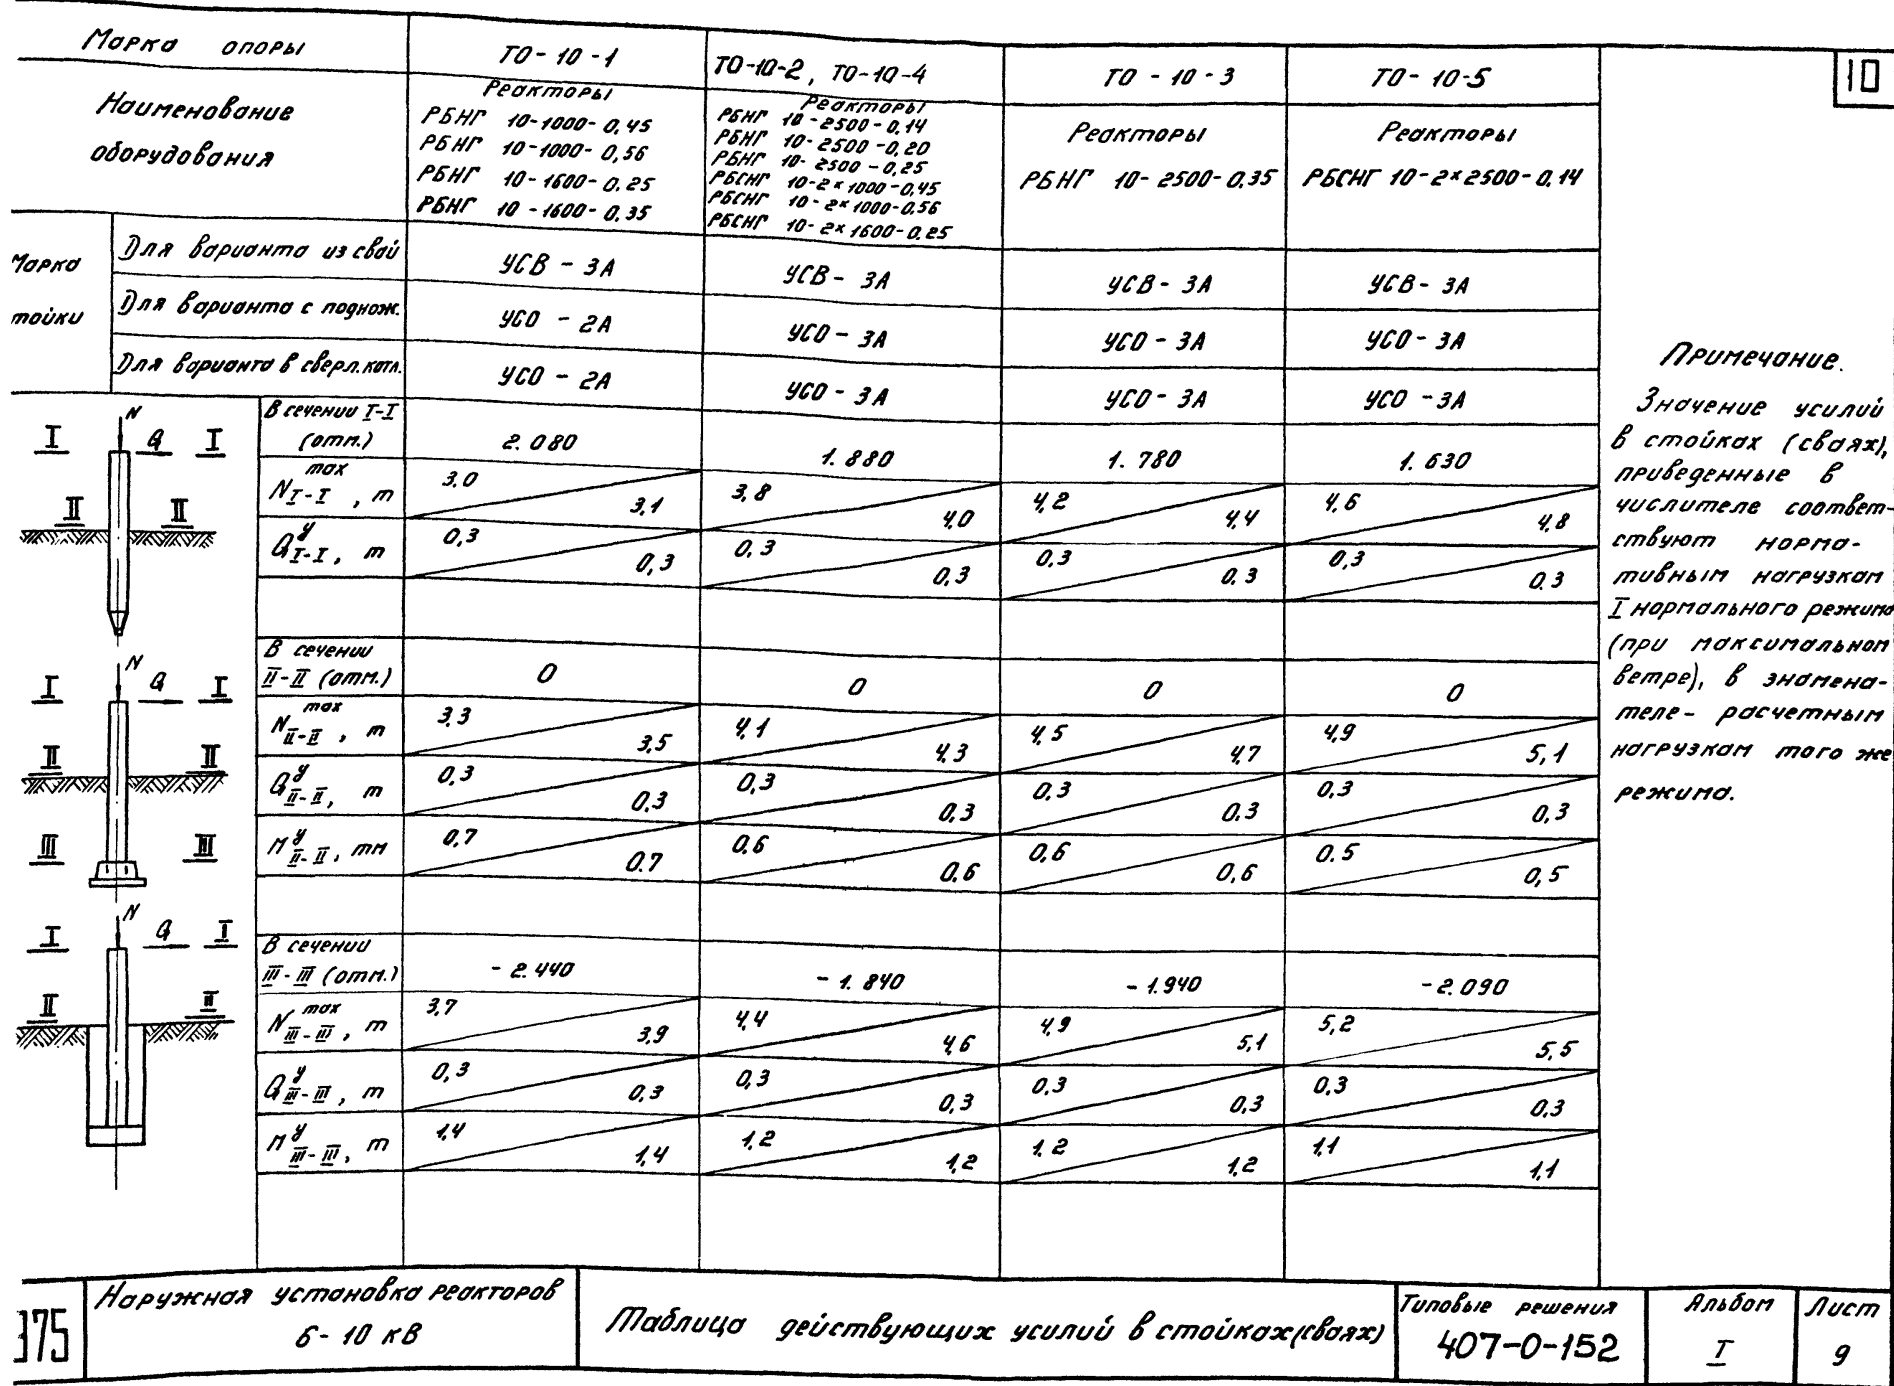 10
Марка опоры
ТО-10-1
ТО-10-2, ТО-10-4
ТО-10-3
ТО-10-5
Наименование
оборудования
Реакторы
РБНГ 10-1000-0,45
РБНГ 10-1000-0,56
РБНГ 10-1600-0,25
РБНГ 10-1600-0,35
Реакторы
РБНГ 10-2500-0,14
РБНГ 10-2500-0,20
РБНГ 10-2500-0,25
РБСНГ 10-2×1000-0,45
РБСНГ 10-2×1000-0,56
РБСНГ 10-2×1600-0,25
Реакторы
РБНГ 10-2500-0,35
Реакторы
РБСНГ 10-2×2500-0,14
Марка
тойки
Для варианта из свай
УСВ-3А
УСВ-3А
УСВ-3А
УСВ-3А
Для варианта с поднож.
УСО-2А
УСО-3А
УСО-3А
УСО-3А
Для варианта в сверл.котл.
УСО-2А
УСО-3А
УСО-3А
УСО-3А
N
Q
I I
II II
В сечении I-I
(отм.)
2.080
1.880
1.780
1.630
N max I-I, т
3,0 3,1
3,8 4,0
4,2 4,4
4,6 4,8
Q у I-I, т
0,3 0,3
0,3 0,3
0,3 0,3
0,3 0,3
N
Q
I I
II II
III III
В сечении
II-II (отм.)
0
0
0
0
N max II-II, т
3,3 3,5
4,1 4,3
4,5 4,7
4,9 5,1
Q у II-II, т
0,3 0,3
0,3 0,3
0,3 0,3
0,3 0,3
М у II-II, тм
0,7 0.7
0,6 0,6
0,6 0,6
0.5 0,5
N
Q
I I
II II
В сечении
III-III (отм.)
-2.440
-1.840
-1.940
-2.090
N max III-III, т
3,7 3,9
4,4 4,6
4,9 5,1
5,2 5,5
Q у III-III, т
0,3 0,3
0,3 0,3
0,3 0,3
0,3 0,3
М у III-III, т
1,4 1,4
1,2 1,2
1,2 1,2
1,1 1,1
Примечание.
Значение усилий
в стойках (сваях),
приведенные в
числителе соответ-
ствуют норма-
тивным нагрузкам
I нормального режима
(при максимальном
ветре), в знамена-
теле- расчетным
нагрузкам того же
режима.
375
Наружная установка реакторов
6-10 кВ
Таблица действующих усилий в стойках(сваях)
Типовые решения
407-0-152
Альбом
I
Лист
9